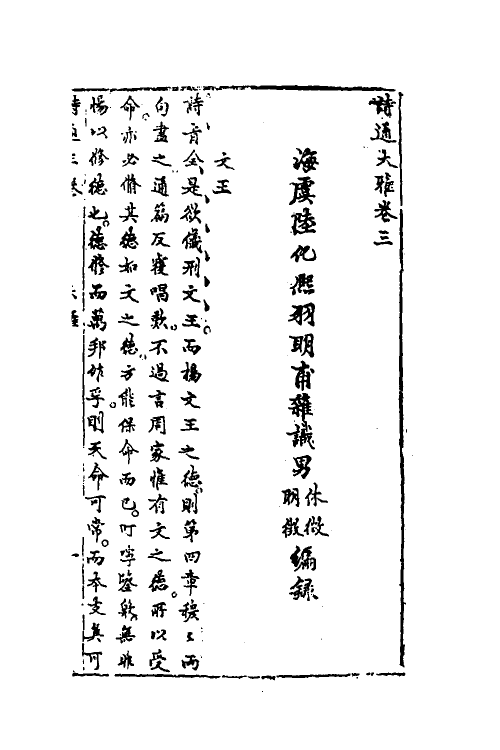 詩通大雅卷三
海虞陸化熙羽明甫雜識男休徵明徵編錄
文王
詩旨全是欲儀刑文王而揚文王之德則第四章穆々兩
句盡之通篇反覆唱歎不過言周家惟有文之德所以受
命亦必脩其德如文之德方能保命而已叮嚀鑒戒無非
惕以修德也德修而萬邦作孚則天命可常而本支真可
詩通三卷 大雅 一